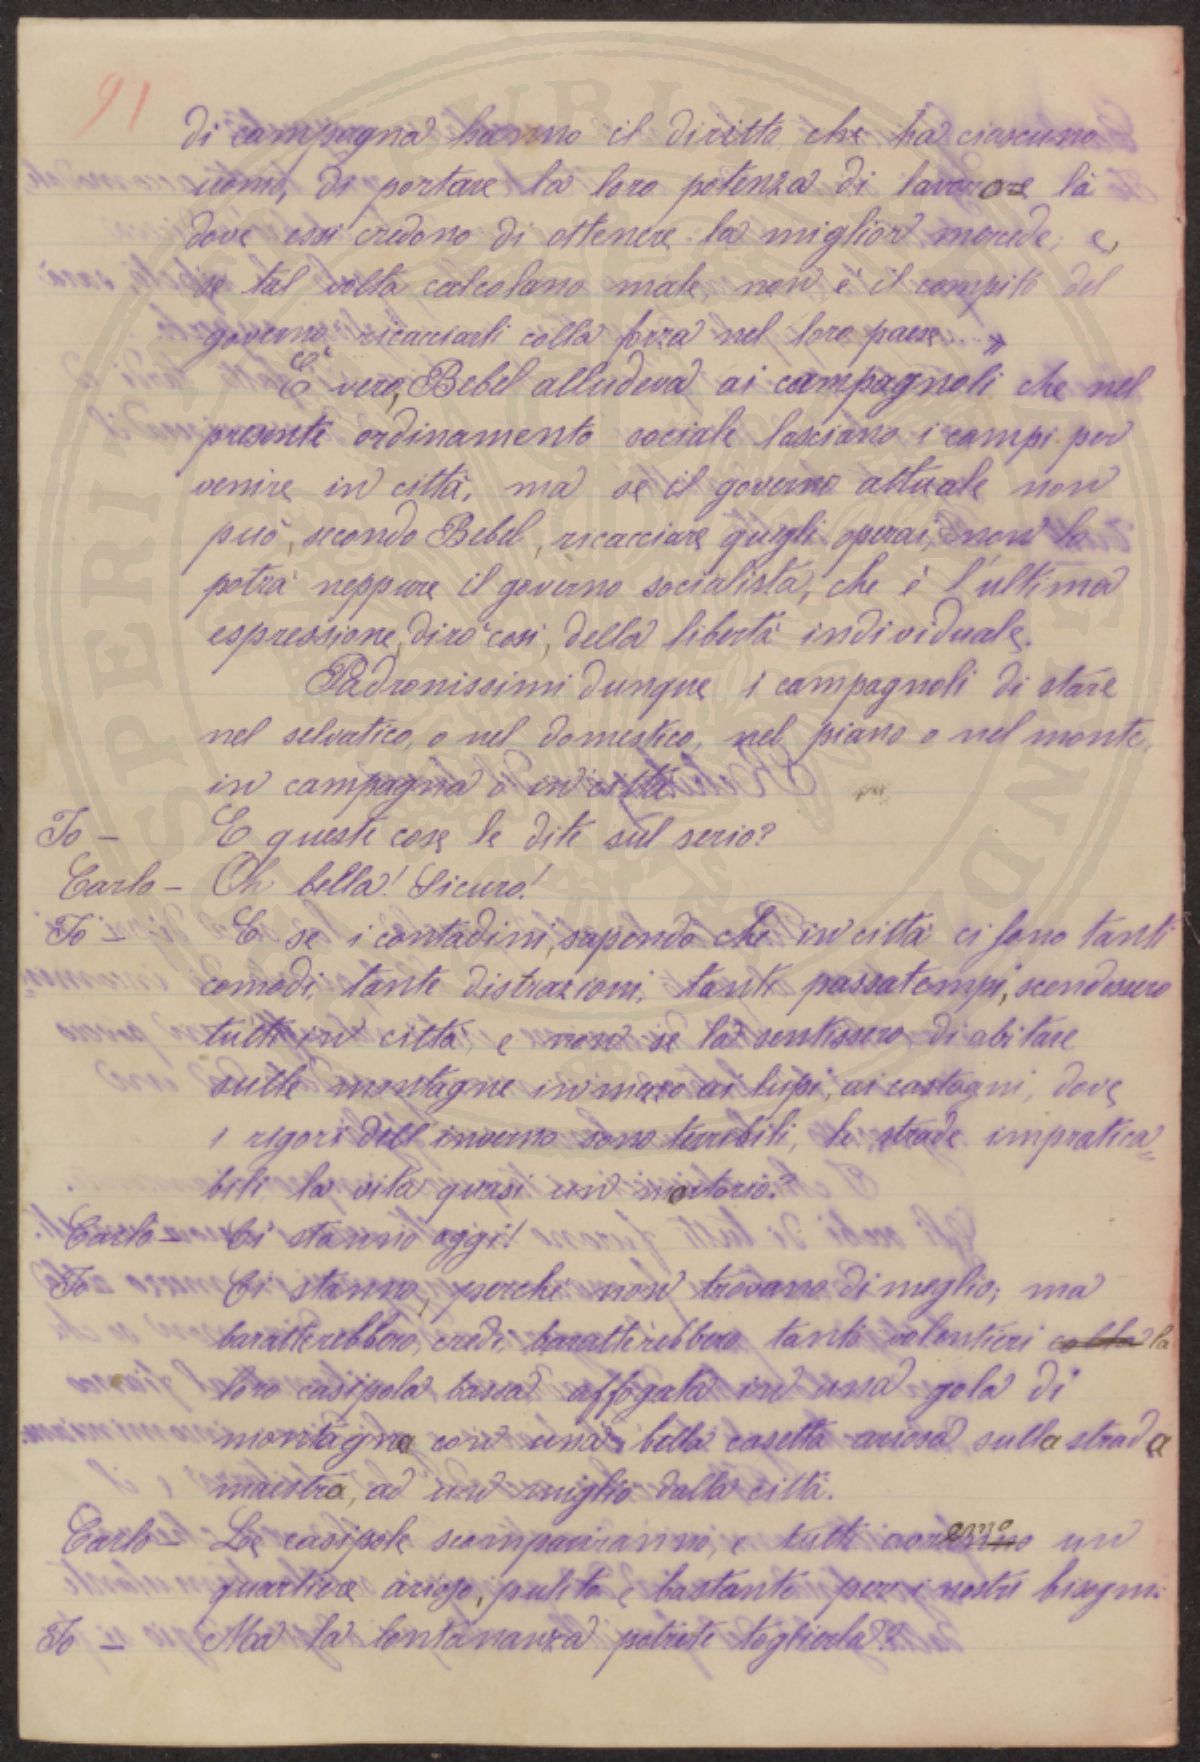 91
di campagna hanno il diritto, che ha ciascuno
uomo, di portare la loro potenza di lavorare là
dove essi credono di ottenere la miglior mercede, e,
se tal volta calcolano male, non è il compito del
governo ricacciarli colla forza nel loro paese....»
È vero, Bebel alludeva ai campagnoli che nel
presente ordinamento sociale lasciano i campi per
venire in città, ma se il governo attuale non
può, secondo Bebel, ricacciare quegli operai, non lo
potrà neppure il governo socialista, che è l'ultima
espressione, dirò così, della libertà individuale.
Padronissimi dunque i campagnoli di stare
nel selvatico, o nel domestico, nel piano o nel monte,
in campagna o in città
Io — E queste cose le dite sul serio?
Carlo — Oh bella! Sicuro!
Io — E se i contadini, sapendo che in città ci sono tanti
comodi, tante distrazioni, tanti passatempi, scendessero
tutti in città, e non se la sentissero di abitare
sulle montagne in mezzo ai lupi, ai castagni, dove
i rigori dell'inverno sono terribili, le strade impratica=
bili la vita quasi un mortorio?
Carlo — Ci stanno oggi!
Io — Ci stanno, perchè non trovano di meglio; ma
baratterebbero, credi, baratterebbero tanto volentieri colla la
loro casipola bassa affogata in una gola di
montagna con una bella casetta ariosa sulla strada
maestra, ad un miglio dalla città.
Carlo — Le casipole scompariranno, e tutti avremo un
quartiere arioso, pulito e bastante per i nostri bisogni.
Io — Ma la lontananza potrete toglierla?